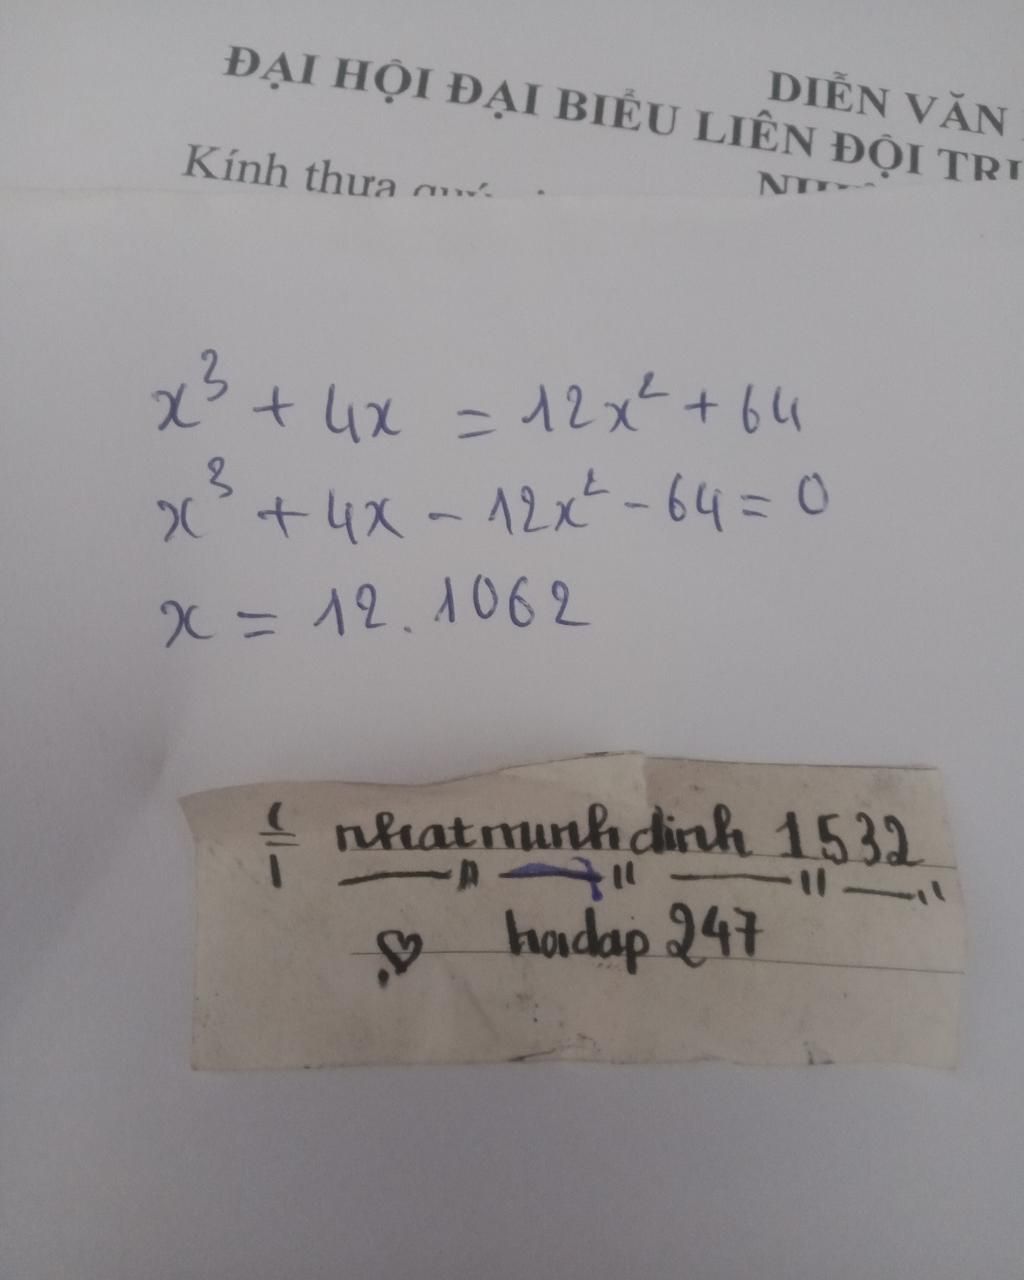 DIỄN VĂN
ĐẠI HỘI ĐẠI BIỂU LIÊN ĐỘI TRƯ
Kính thưa quý
x³ + 4x = 12x² + 64
x³ + 4x - 12x² - 64 = 0
x = 12.1062
nhatminhdinh 1532
hoidap 247